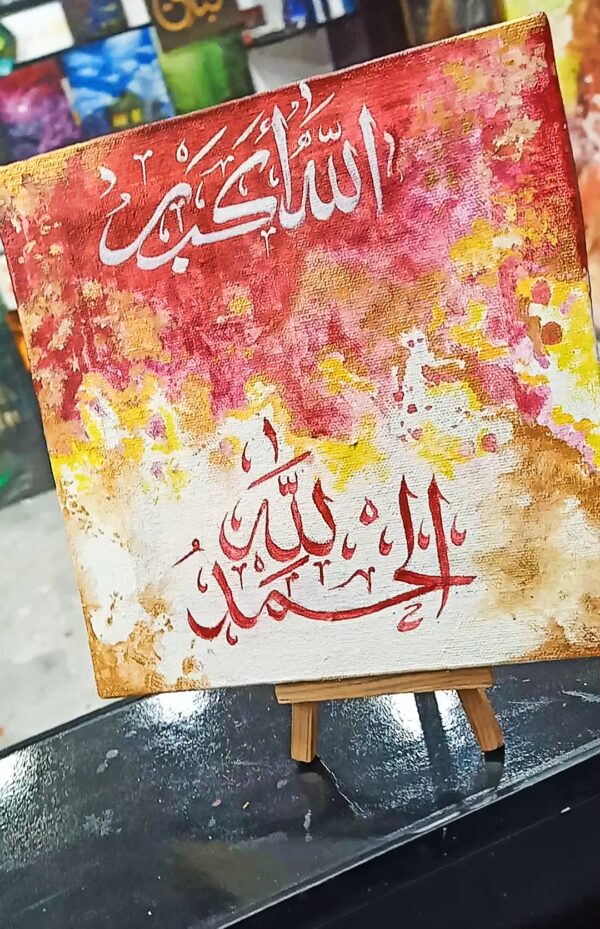 الله أكبر
الحمد لله